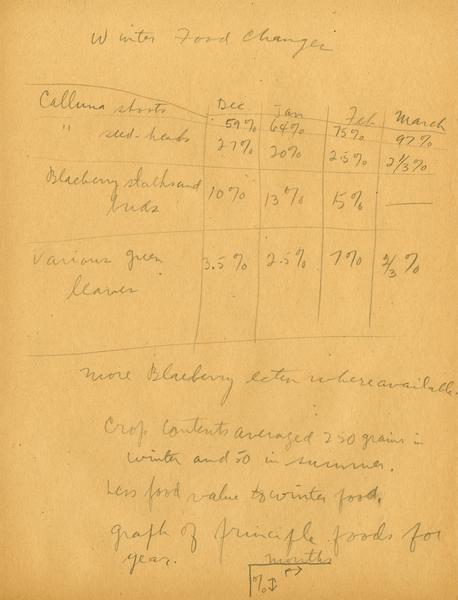 Winter Food Changes
Dec Jan Feb March
Calluna shoots 59% 64% 75% 97%
" seed-heads 27% 20% 2.5% 2 1/3%
Blaeberry stalks and
buds 10% 13% 15% —
Various green
leaves 3.5% 2.5% 7% 2/3%
more Blaeberry eaten where available.
Crop Contents averaged 250 grains in
winter and 50 in summer.
Less food value to winter food.
graph of principle foods for
year. months
%